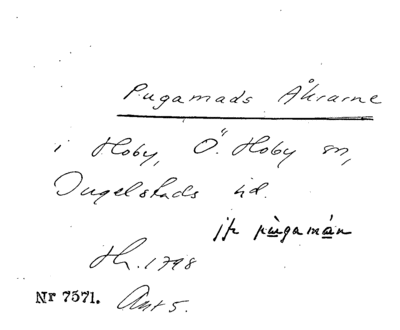 Pugamads Åkrarne
i Hoby, Ö. Hoby sn,
Ingelstads hd.
jfr pùgamán
Hh. 1798
Nr 7571. Ant 5.